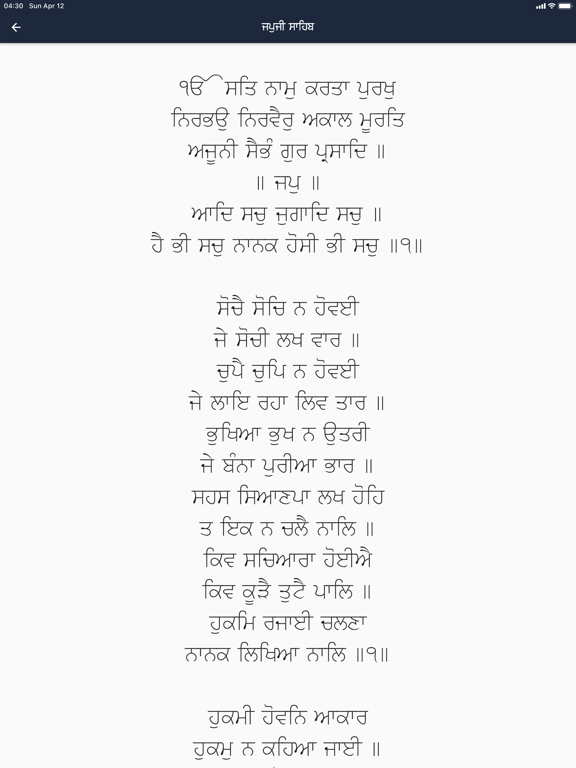 04:30 Sun Apr 12
ਜਪੁਜੀ ਸਾਹਿਬ
ੴ ਸਤਿ ਨਾਮੁ ਕਰਤਾ ਪੁਰਖੁ
ਨਿਰਭਉ ਨਿਰਵੈਰੁ ਅਕਾਲ ਮੂਰਤਿ
ਅਜੂਨੀ ਸੈਭੰ ਗੁਰ ਪ੍ਰਸਾਦਿ ॥
॥ ਜਪੁ ॥
ਆਦਿ ਸਚੁ ਜੁਗਾਦਿ ਸਚੁ ॥
ਹੈ ਭੀ ਸਚੁ ਨਾਨਕ ਹੋਸੀ ਭੀ ਸਚੁ ॥੧॥
ਸੋਚੈ ਸੋਚਿ ਨ ਹੋਵਈ
ਜੇ ਸੋਚੀ ਲਖ ਵਾਰ ॥
ਚੁਪੈ ਚੁਪਿ ਨ ਹੋਵਈ
ਜੇ ਲਾਇ ਰਹਾ ਲਿਵ ਤਾਰ ॥
ਭੁਖਿਆ ਭੁਖ ਨ ਉਤਰੀ
ਜੇ ਬੰਨਾ ਪੁਰੀਆ ਭਾਰ ॥
ਸਹਸ ਸਿਆਣਪਾ ਲਖ ਹੋਹਿ
ਤ ਇਕ ਨ ਚਲੈ ਨਾਲਿ ॥
ਕਿਵ ਸਚਿਆਰਾ ਹੋਈਐ
ਕਿਵ ਕੂੜੈ ਤੁਟੈ ਪਾਲਿ ॥
ਹੁਕਮਿ ਰਜਾਈ ਚਲਣਾ
ਨਾਨਕ ਲਿਖਿਆ ਨਾਲਿ ॥੧॥
ਹੁਕਮੀ ਹੋਵਨਿ ਆਕਾਰ
ਹੁਕਮੁ ਨ ਕਹਿਆ ਜਾਈ ॥